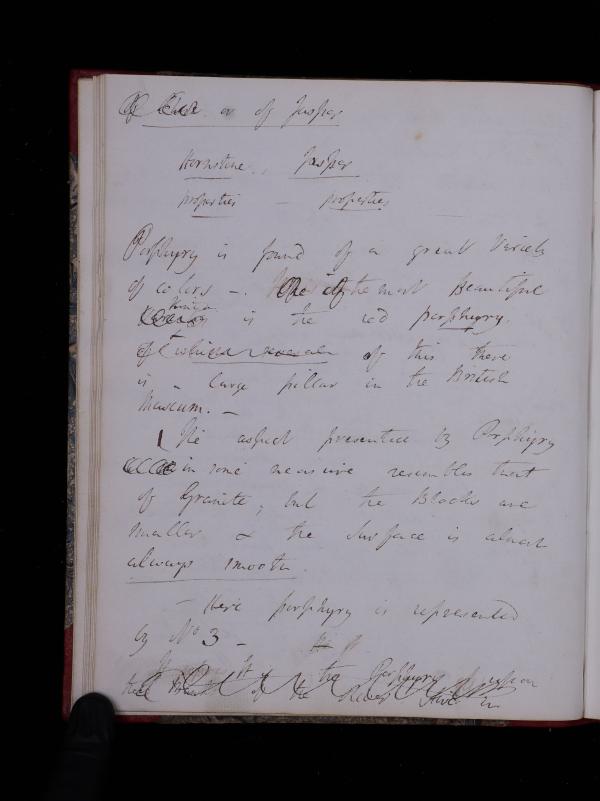 or of Jasper
Hornstone, Jasper
properties - properties
Porphyry is found of a great Variety
of colors -. One of the most Beautiful
is the red porphyry.
of this there
is a large pillar in the British
Museum. -
The aspect presented by Porphyry
in some measure resembles that
of Granite; but the Blocks are
smaller & the surface is almost
always smooth.
- Here porphyry is represented
by No 3 -
the Porphyry
of the River